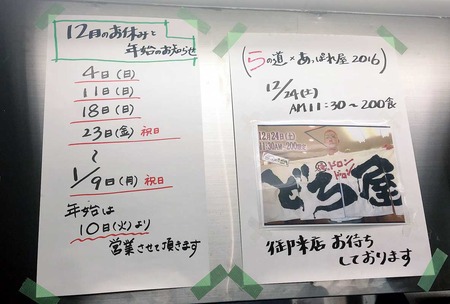 12月のお休みと
年始のお知らせ
4日(日)
11日(日)
18日(日)
23日(金)祝日
〜
1/9日(月)祝日
年始は
10日(火)より
営業させて頂きます
(らの道×あっぱれ屋2016)
12/24(土)
AM11:30〜200食
12月24日(土)
11:30AM 200限定
ドロン
ドロン
どろ屋
御来店お待ち
しております